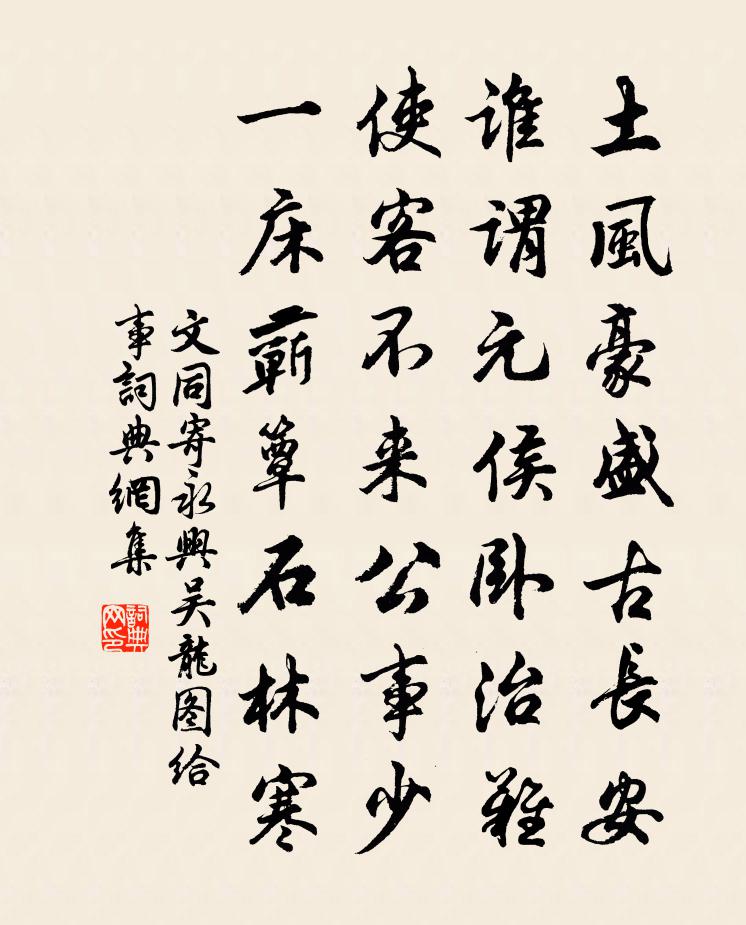 土風豪盛古長安
誰謂元侯卧治難
使客不来公事少
一床蕲簟石林寒
文同寄永興吴龍图给
事詞典網集
詞典
网印